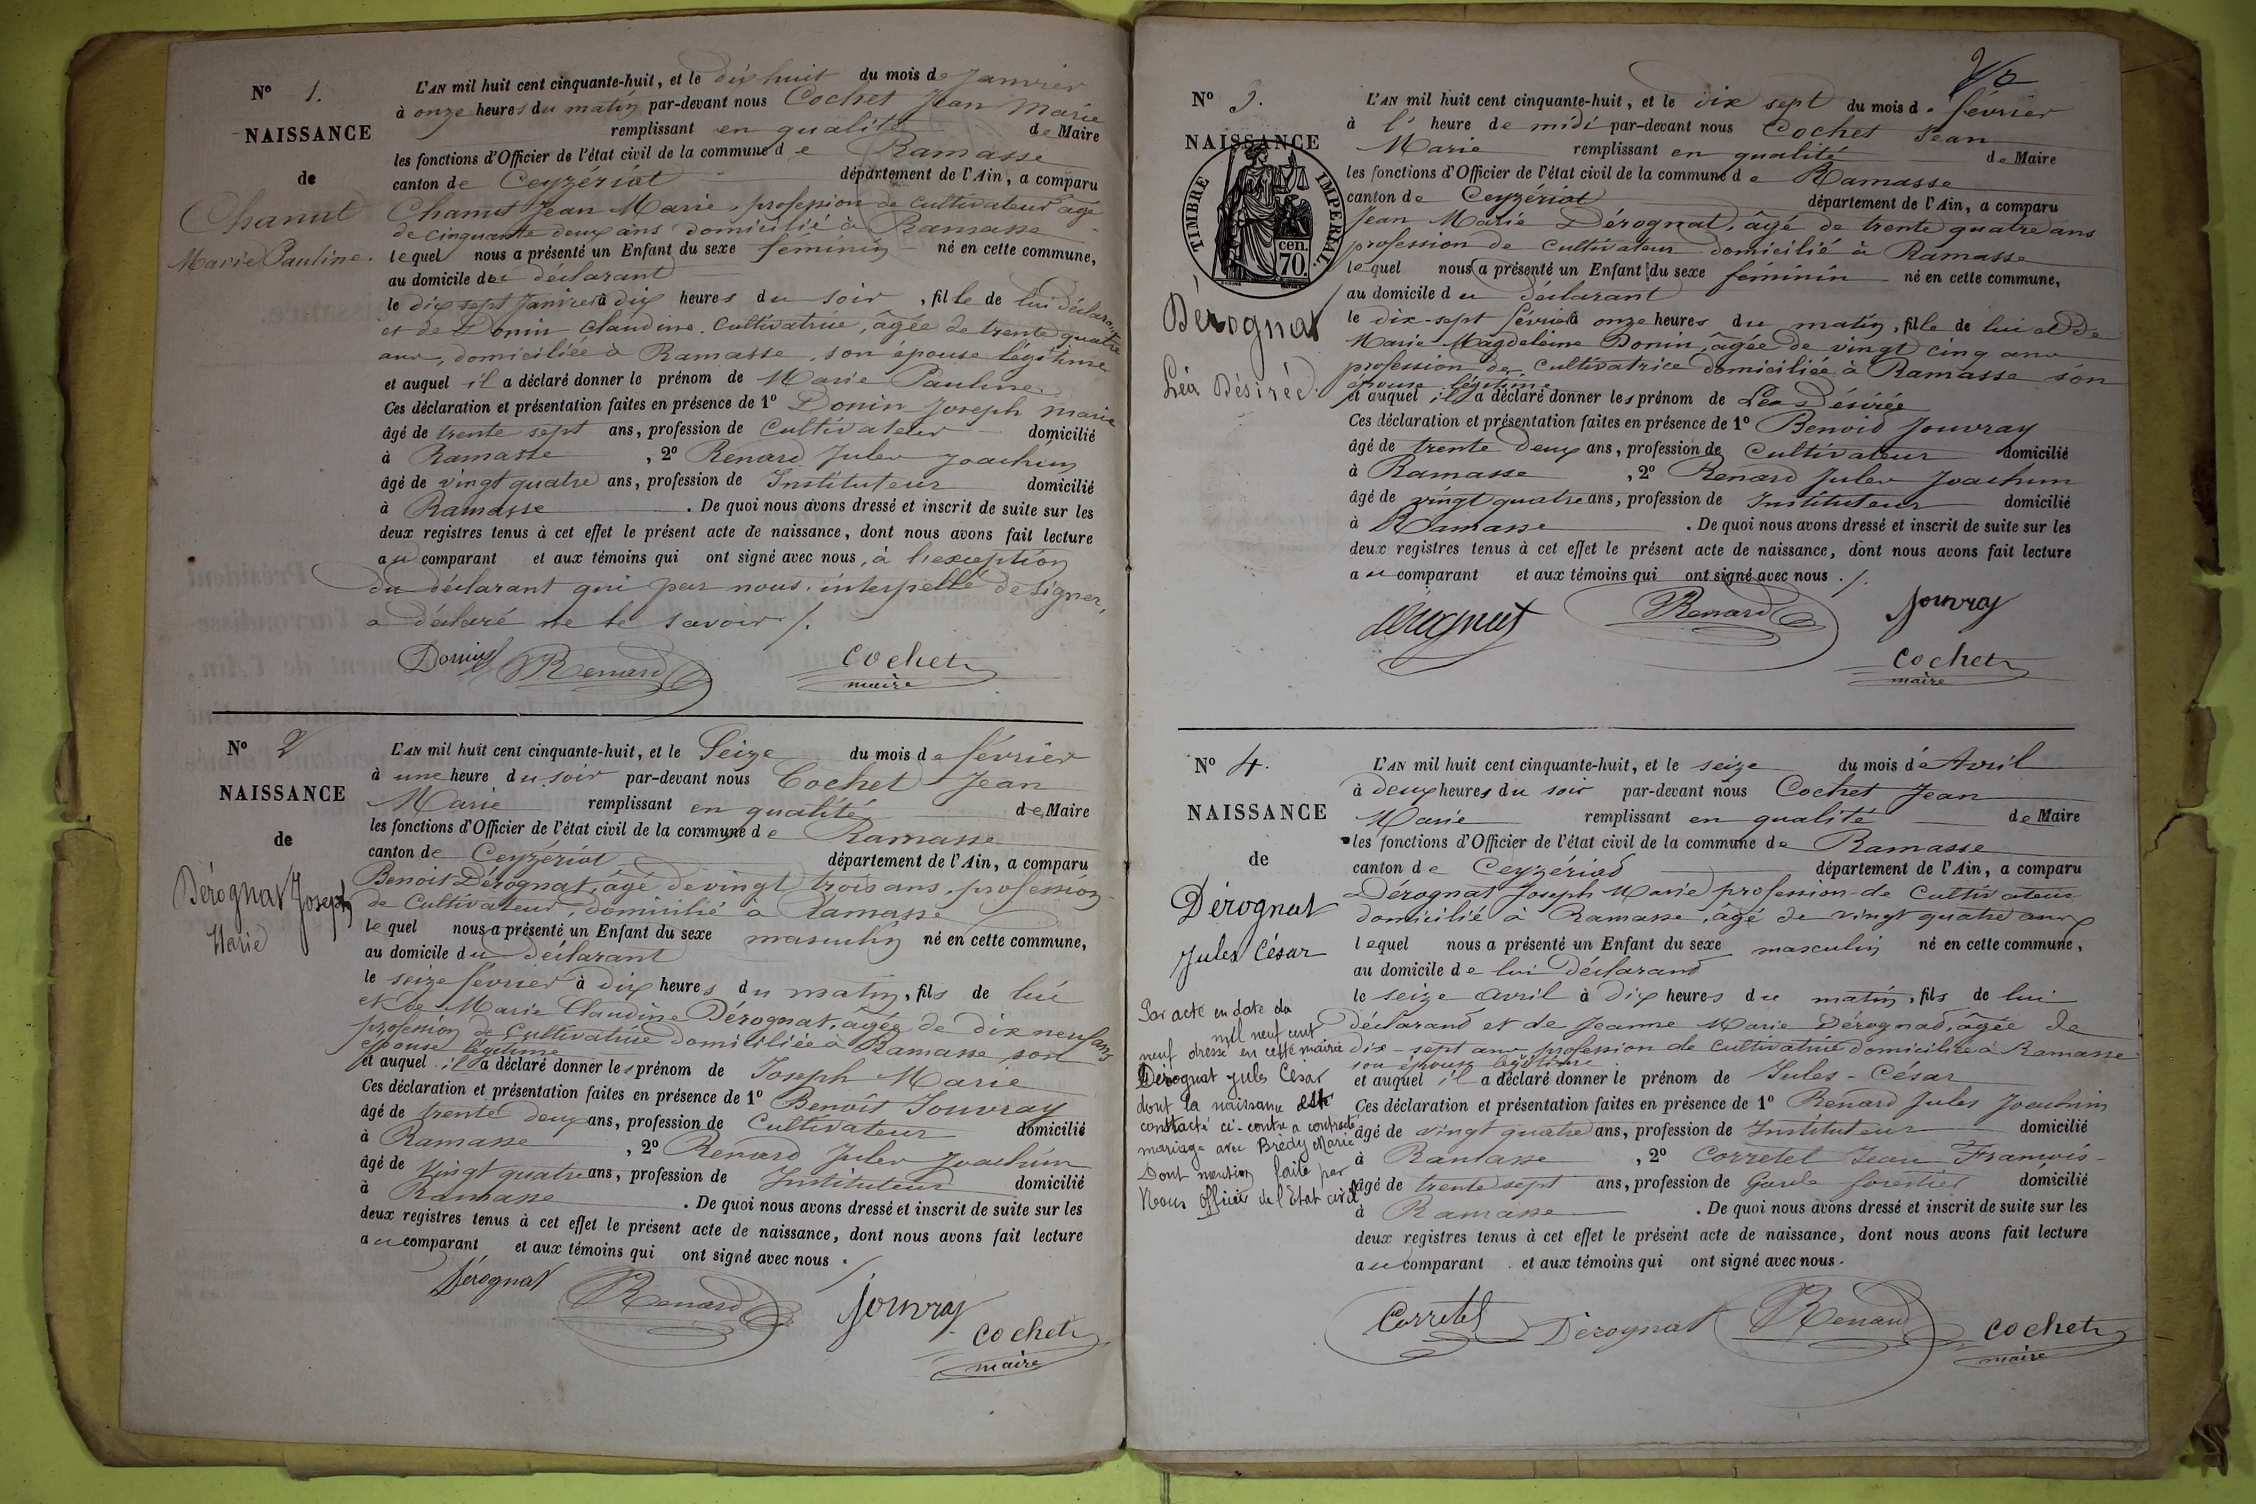 N° 1.
NAISSANCE
de
Chanut
Marie Pauline.
L'AN mil huit cent cinquante-huit, et le dix huit du mois de Janvier
à onze heures du matin par-devant nous Cochet Jean Marie
remplissant en qualité de Maire
les fonctions d'Officier de l'état civil de la commune de Ramasse
canton de Ceyzériat département de l'Ain, a comparu
Chanut Jean Marie, profession de cultivateur âgé
de cinquante deux ans domicilié à Ramasse
lequel nous a présenté un Enfant du sexe féminin né en cette commune,
au domicile du déclarant
le dix sept Janvier à dix heures du soir, fille de lui déclarant
et de Donin Claudine, Cultivatrice, âgée de trente quatre
ans, domiciliée à Ramasse, son épouse légitime
et auquel il a déclaré donner le prénom de Marie Pauline
Ces déclaration et présentation faites en présence de 1° Donin Joseph Marie
âgé de trente sept ans, profession de Cultivateur domicilié
à Ramasse, 2° Renard Jules Joachim
âgé de vingt quatre ans, profession de Instituteur domicilié
à Ramasse. De quoi nous avons dressé et inscrit de suite sur les
deux registres tenus à cet effet le présent acte de naissance, dont nous avons fait lecture
au comparant et aux témoins qui ont signé avec nous, à l'exception
du déclarant qui par nous interpellé de signer,
a déclaré ne le savoir /.
Donin Renard Cochet
maire
N° 2
NAISSANCE
de
Dérognat Joseph
Marie
L'AN mil huit cent cinquante-huit, et le Seize du mois de février
à une heure du soir par-devant nous Cochet Jean
Marie remplissant en qualité de Maire
les fonctions d'Officier de l'état civil de la commune de Ramasse
canton de Ceyzériat département de l'Ain, a comparu
Benoit Dérognat, âgé de vingt trois ans, profession
de Cultivateur, domicilié à Ramasse
lequel nous a présenté un Enfant du sexe masculin né en cette commune,
au domicile du Déclarant
le seize février à dix heures du matin, fils de lui
et de Marie Claudine Dérognat, âgée de dix neuf ans
profession de Cultivatrice domiciliée à Ramasse son
épouse légitime
et auquel il a déclaré donner les prénom de Joseph Marie
Ces déclaration et présentation faites en présence de 1° Benoît Jouvray
âgé de trente deux ans, profession de Cultivateur domicilié
à Ramasse, 2° Renard Jules Joachim
âgé de vingt quatre ans, profession de Instituteur domicilié
à Ramasse. De quoi nous avons dressé et inscrit de suite sur les
deux registres tenus à cet effet le présent acte de naissance, dont nous avons fait lecture
au comparant et aux témoins qui ont signé avec nous. /
Dérognat Renard Jouvray
Cochet
maire
N° 3.
NAISSANCE
TIMBRE IMPERIAL.
cen.
70.
Dérognat
Léa Désirée.
L'AN mil huit cent cinquante-huit, et le dix sept du mois de février
à l' heure de midi par-devant nous Cochet Jean
Marie remplissant en qualité de Maire
les fonctions d'Officier de l'état civil de la commune de Ramasse
canton de Ceyzériat département de l'Ain, a comparu
Jean Marie Dérognat, âgé de trente quatre ans
profession de cultivateur domicilié à Ramasse
lequel nous a présenté un Enfant du sexe féminin né en cette commune,
au domicile du déclarant
le dix-sept février à onze heures du matin, fille de lui et de
Marie Magdeleine Donin, âgée de vingt cinq ans
profession de cultivatrice domiciliée à Ramasse son
épouse légitime
et auquel il a déclaré donner les prénom de Léa Désirée
Ces déclaration et présentation faites en présence de 1° Benoid Jouvray
âgé de trente deux ans, profession de Cultivateur domicilié
à Ramasse, 2° Renard Jules Joachim
âgé de vingt quatre ans, profession de Instituteur domicilié
à Ramasse. De quoi nous avons dressé et inscrit de suite sur les
deux registres tenus à cet effet le présent acte de naissance, dont nous avons fait lecture
au comparant et aux témoins qui ont signé avec nous. /.
derognat Renard Jouvray
Cochet
maire
N° 4.
NAISSANCE
de
Dérognat
Jules César
Par acte en date du
mil neuf cent
neuf dressé en cette mairie
Dérognat Jules César
dont la naissance est
constaté ci-contre a contracté
mariage avec Brédy Marie
Dont mention faite par
Nous Officier de l'Etat civil
L'AN mil huit cent cinquante-huit, et le seize du mois de Avril
à deux heures du soir par-devant nous Cochet Jean
Marie remplissant en qualité de Maire
les fonctions d'Officier de l'état civil de la commune de Ramasse
canton de Ceyzériad département de l'Ain, a comparu
Dérognat Joseph Marie profession de Cultivateur
domicilié à Ramasse, âgé de vingt quatre ans
lequel nous a présenté un Enfant du sexe masculin né en cette commune,
au domicile de lui Déclarand
le seize avril à dix heures du matin, fils de lui
déclarand et de Jeanne Marie Dérognad, âgée de
dix-sept ans profession de cultivatrice domiciliée à Ramasse
son épouse légitime
et auquel il a déclaré donner le prénom de Jules-César
Ces déclaration et présentation faites en présence de 1° Renard Jules Joachim
âgé de vingt quatre ans, profession de Instituteur domicilié
à Ramasse, 2° Corretel Jean François
âgé de trente sept ans, profession de Garde forestier domicilié
à Ramasse. De quoi nous avons dressé et inscrit de suite sur les
deux registres tenus à cet effet le présent acte de naissance, dont nous avons fait lecture
au comparant et aux témoins qui ont signé avec nous.
Corretel Dérognat Renard Cochet
maire